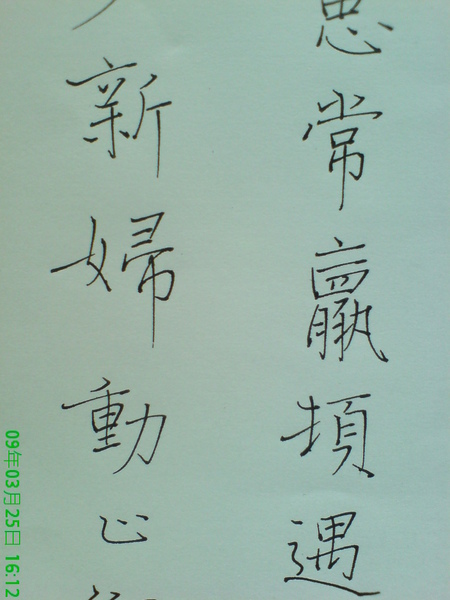 常羸頓遇
新婦動止
09年03月25日 16:12